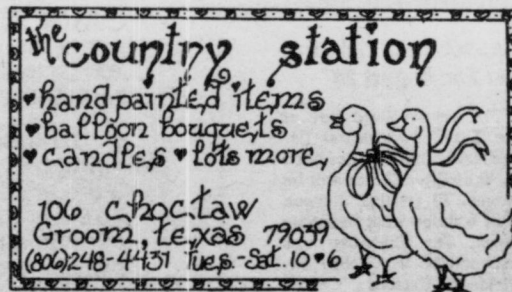 the country station
♥ handpainted items
♥ balloon bouquets
♥ candles ♥ lots more
106 Choctaw
Groom, Texas 79039
(806)248-4431 Tues.-Sat. 10♥6